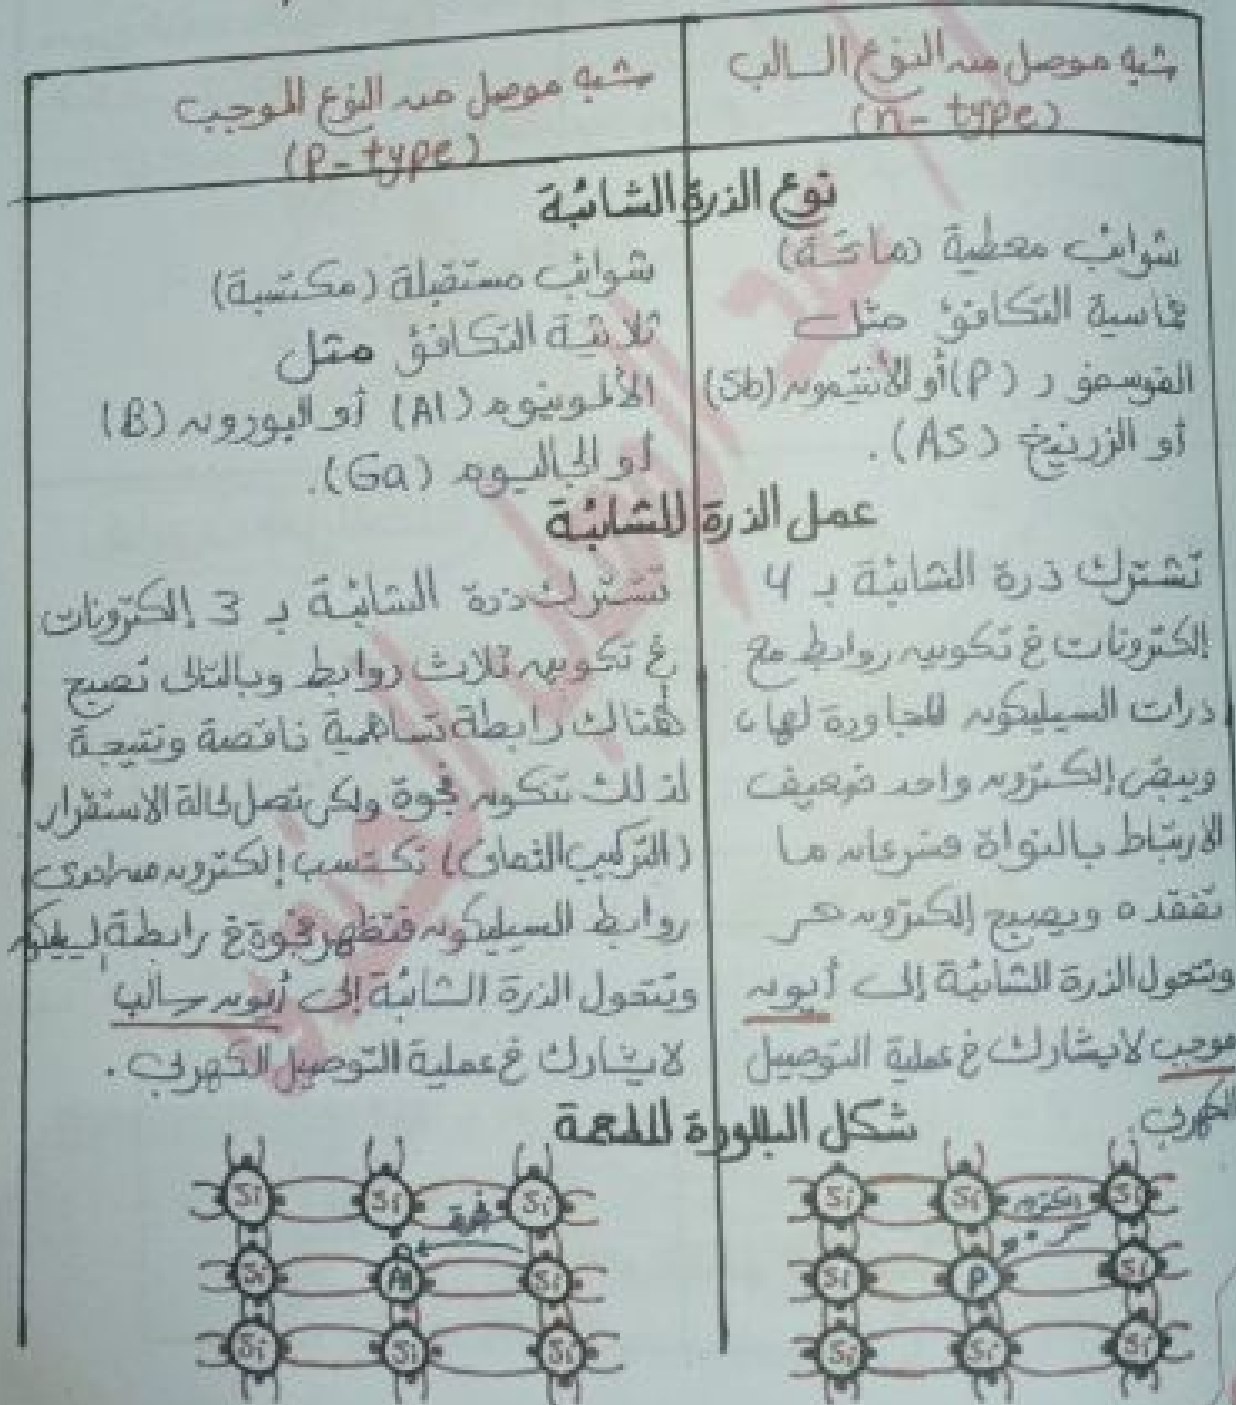 شبه موصل من النوع السالب
(n- type)
شبه موصل من النوع الموجب
(P- type)
نوع الذرة الشائبة
شوائب معطية (مانحة)
خماسية التكافؤ مثل
الفوسفور (P) أو الأنتيمون (Sb)
أو الزرنيخ (As).
شوائب مستقبلة (مكتسبة)
ثلاثية التكافؤ مثل
الألمونيوم (Al) أو البورون (B)
أو الجاليوم (Ga).
عمل الذرة الشائبة
تشترك ذرة الشائبة بـ 4
إلكترونات في تكوين روابط مع
ذرات السيليكون المجاورة لها،
ويبقى إلكترون واحد ضعيف
الارتباط بالنواة فسرعان ما
تفقده ويصبح إلكترون حر
وتتحول الذرة الشائبة إلى أيون
موجب لا يشارك في عملية التوصيل
الكهربي.
تشترك ذرة الشائبة بـ 3 إلكترونات
في تكوين ثلاث روابط وبالتالى تصبح
هناك رابطة تساهمية ناقصة ونتيجة
لذلك تتكون فجوة ولكى تصل لحالة الاستقرار
(التركيب الثمانى) تكتسب إلكترون من احدى
روابط السيليكون فتظهر فجوة في رابطة السيليكون
وتتحول الذرة الشائبة إلى أيون سالب
لا يشارك في عملية التوصيل الكهربي.
شكل البللورة المطعمة
Si Si الكترون Si
حر
Si P Si
Si Si Si
Si Si فجوة Si
Si Al Si
Si Si Si